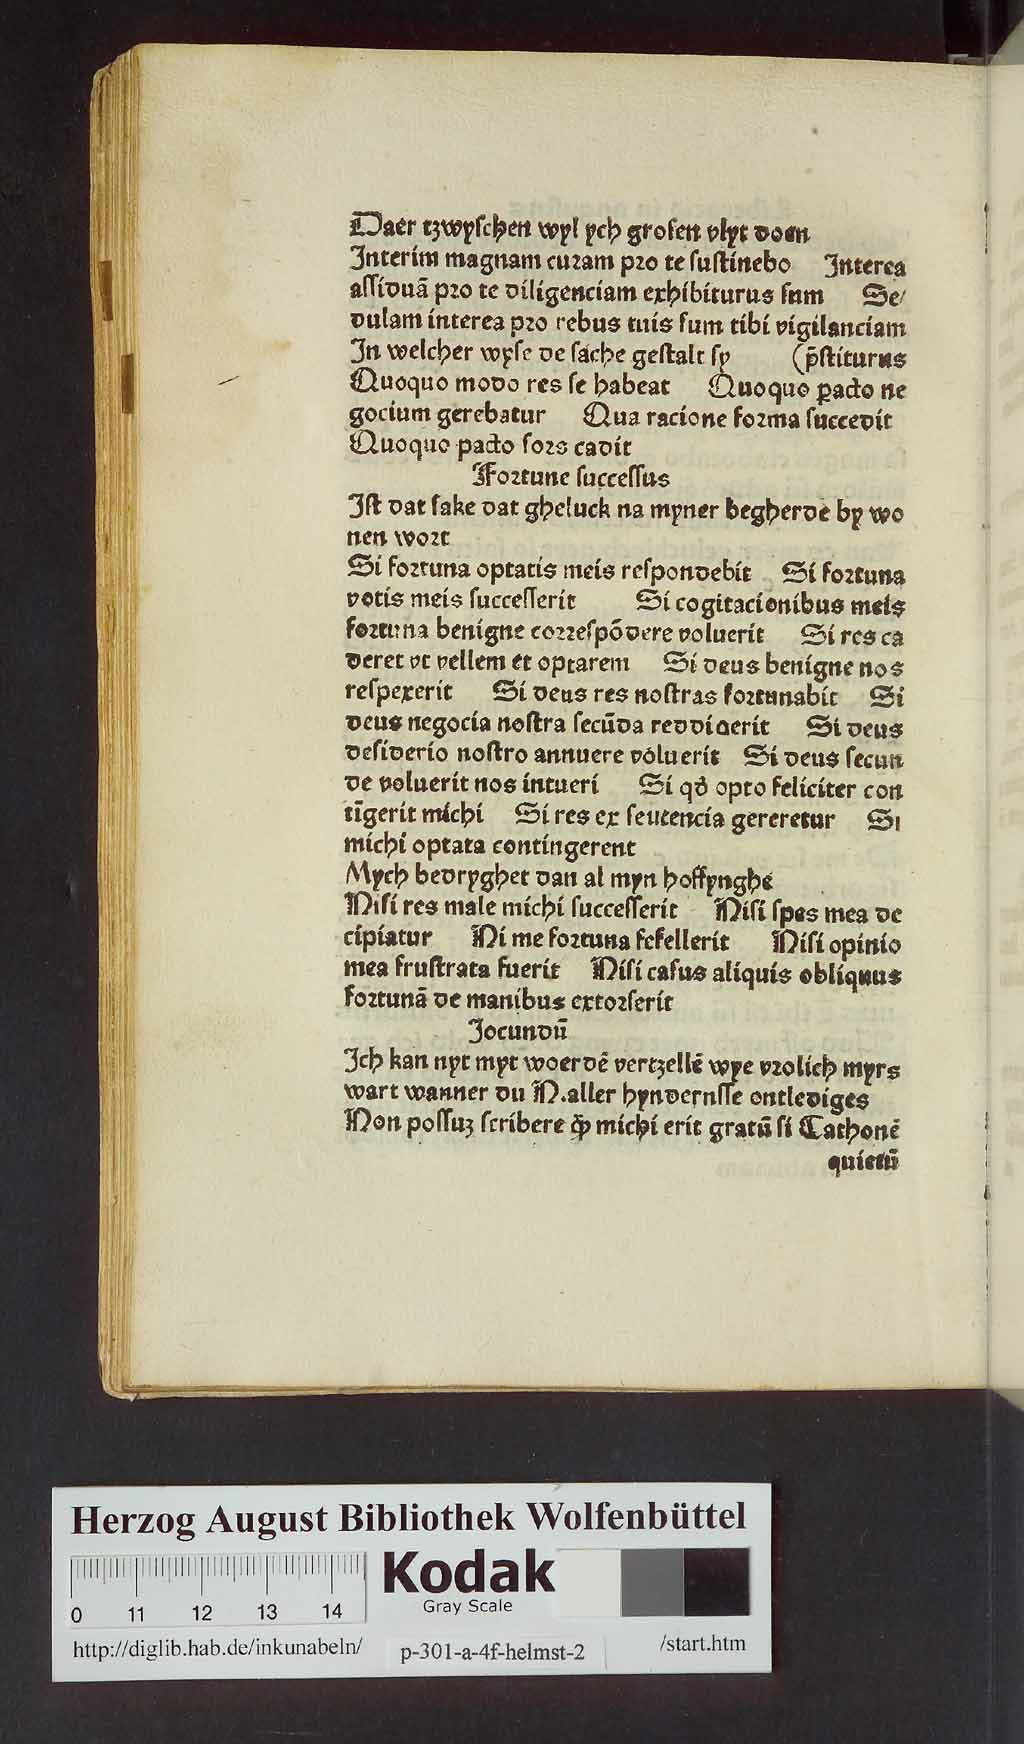 Daer tzwyſchen wyl ych groſen vlyt doen
Interim magnam curam pro te ſuſtinebo Interea
aſſiduã pro te diligenciam exhibiturus ſum Se⸗
dulam interea pro rebus tuis ſum tibi vigilanciam
In welcher wyſe de ſache geſtalt ſy (p̃ſtiturus
Quoquo modo res ſe habeat Quoquo ꝑacto ne
gocium gerebatur Qua racione forma ſuccedit
Quoquo pacto ſors cadit
Fortune ſucceſſus
Iſt dat ſake dat gheluck na myner begherde by wo
nen wort
Si fortuna optatis meis reſpondebit Si fortuna
votis meis ſucceſſerit Si cogitacionibus meis
fortuna benigne correſpõdere voluerit Si res ca
deret vt vellem et optarem Si deus benigne nos
reſpexerit Si deus res noſtras fortunabit Si
deus negocia noſtra ſecũda reddiderit Si deus
deſiderio noſtro annuere voluerit Si deus ſecun
de voluerit nos intueri Si qď opto feliciter con
tĩgerit michi Si res ex ſeutencia gereretur Si
michi optata contingerent
Mych bedryghet dan al myn hoffynghe
Niſi res male michi ſucceſſerit Niſi ſpes mea de
cipiatur Ni me fortuna fefellerit Niſi opinio
mea fruſtrata fuerit Niſi caſus aliquis obliquus
fortunã de manibus extorſerit
Jocundũ
Ich kan nyt myt woerdẽ vertzellẽ wye vrolich myrs
wart wanner du N.aller hyndernſſe ontlediges
Non poſſuꝫ ſcribere ꝙ̃ michi erit gratũ ſi Cathonẽ
quietũ
Herzog August Bibliothek Wolfenbüttel
Kodak
Gray Scale
0 11 12 13 14
http://diglib.hab.de/inkunabeln/ p-301-a-4f-helmst-2 /start.htm